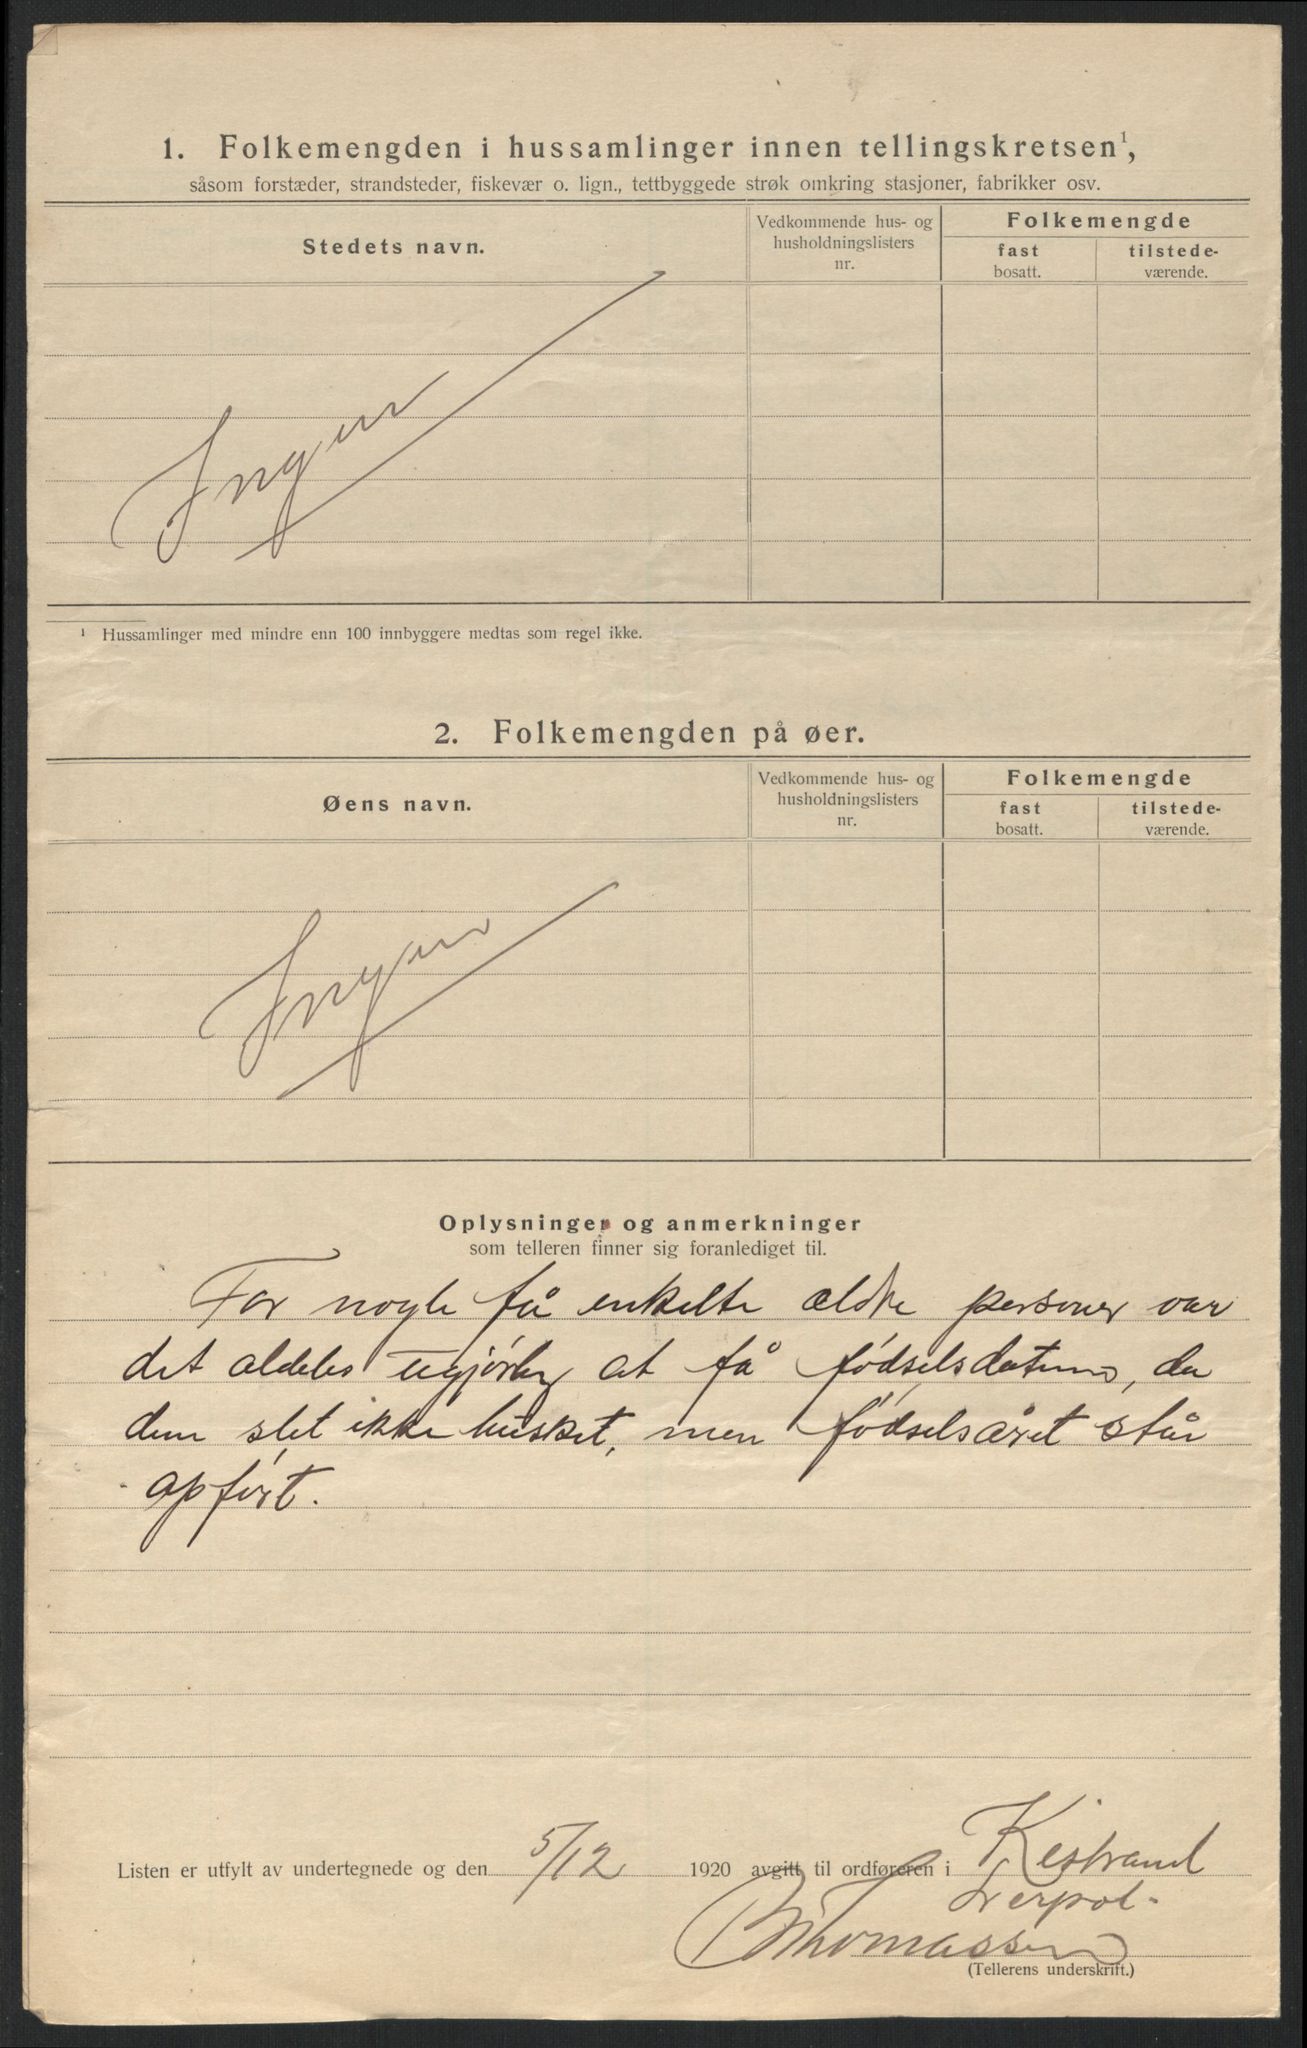 1. Folkemengden i hussamlinger innen tellingskretsen¹,
såsom forstæder, strandsteder, fiskevær o. lign., tettbyggede strøk omkring stasjoner, fabrikker osv.
Stedets navn.
Vedkommende hus- og
husholdningslisters
nr.
Folkemengde
fast
bosatt.
tilstede-
værende.
Ingen
¹ Hussamlinger med mindre enn 100 innbyggere medtas som regel ikke.
2. Folkemengden på øer.
Øens navn.
Vedkommende hus- og
husholdningslisters
nr.
Folkemengde
fast
bosatt.
tilstede-
værende.
Ingen
Oplysninger og anmerkninger
som telleren finner sig foranlediget til.
For nogle få enkelte ældre personer var
det aldeles ugjørlig at få fødselsdatum, da
dem slet ikke husket, men fødselsåret står
opført.
Listen er utfylt av undertegnede og den 5/12 1920 avgitt til ordføreren i Kistrand
Thomassen
(Tellerens underskrift.)